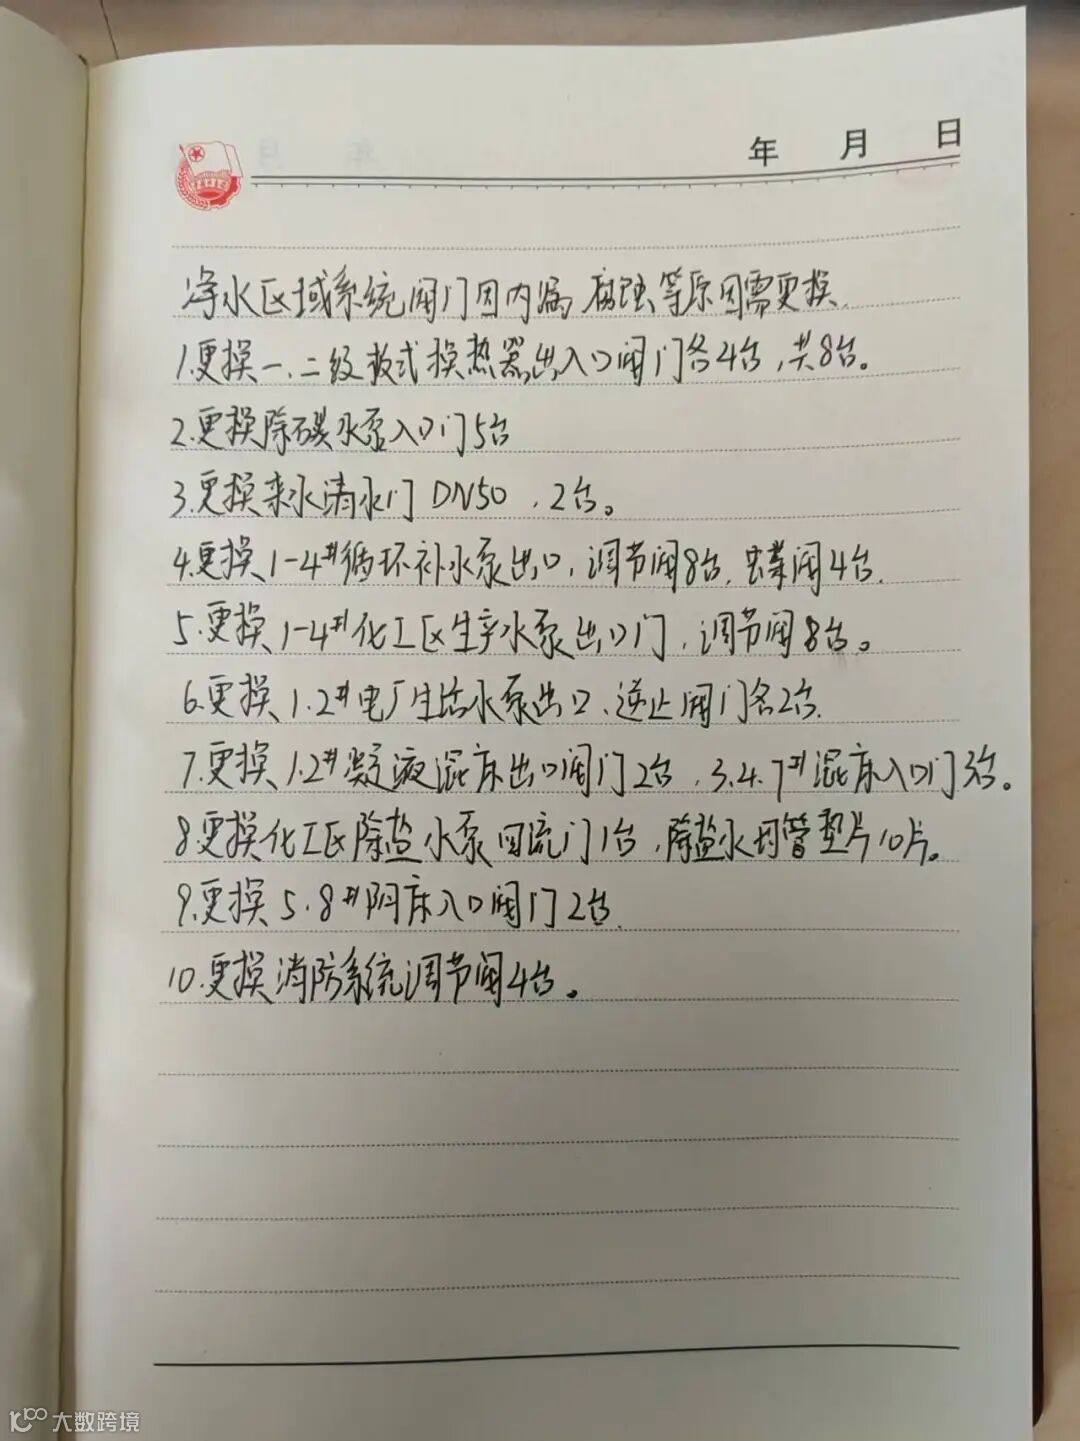 年 月 日
净水区域系统阀门因内漏、腐蚀等原因需更换.
1.更换一、二级板式换热器出入口阀门各4台，共8台。
2.更换除碳水泵入口门5台
3.更换来水清水门 DN50，2台。
4.更换1-4#循环补水泵出口，调节阀8台，蝶阀4台.
5.更换1-4#化工区生产水泵出口门，调节阀8台。
6.更换1.2#电厂生活水泵出口、逆止阀门各2台.
7.更换1.2#凝液混床出口阀门2台，3.4.7#混床入口门3台。
8.更换化工区除盐水泵回流门1台，除盐水母管垫片10片。
9.更换5.8#阴床入口阀门2台.
10.更换消防系统调节阀4台。
大数跨境